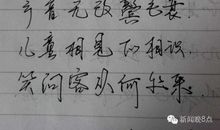 乡音无改鬓毛衰.
儿童相见不相识.
笑问客从何处来.
新闻晚8点